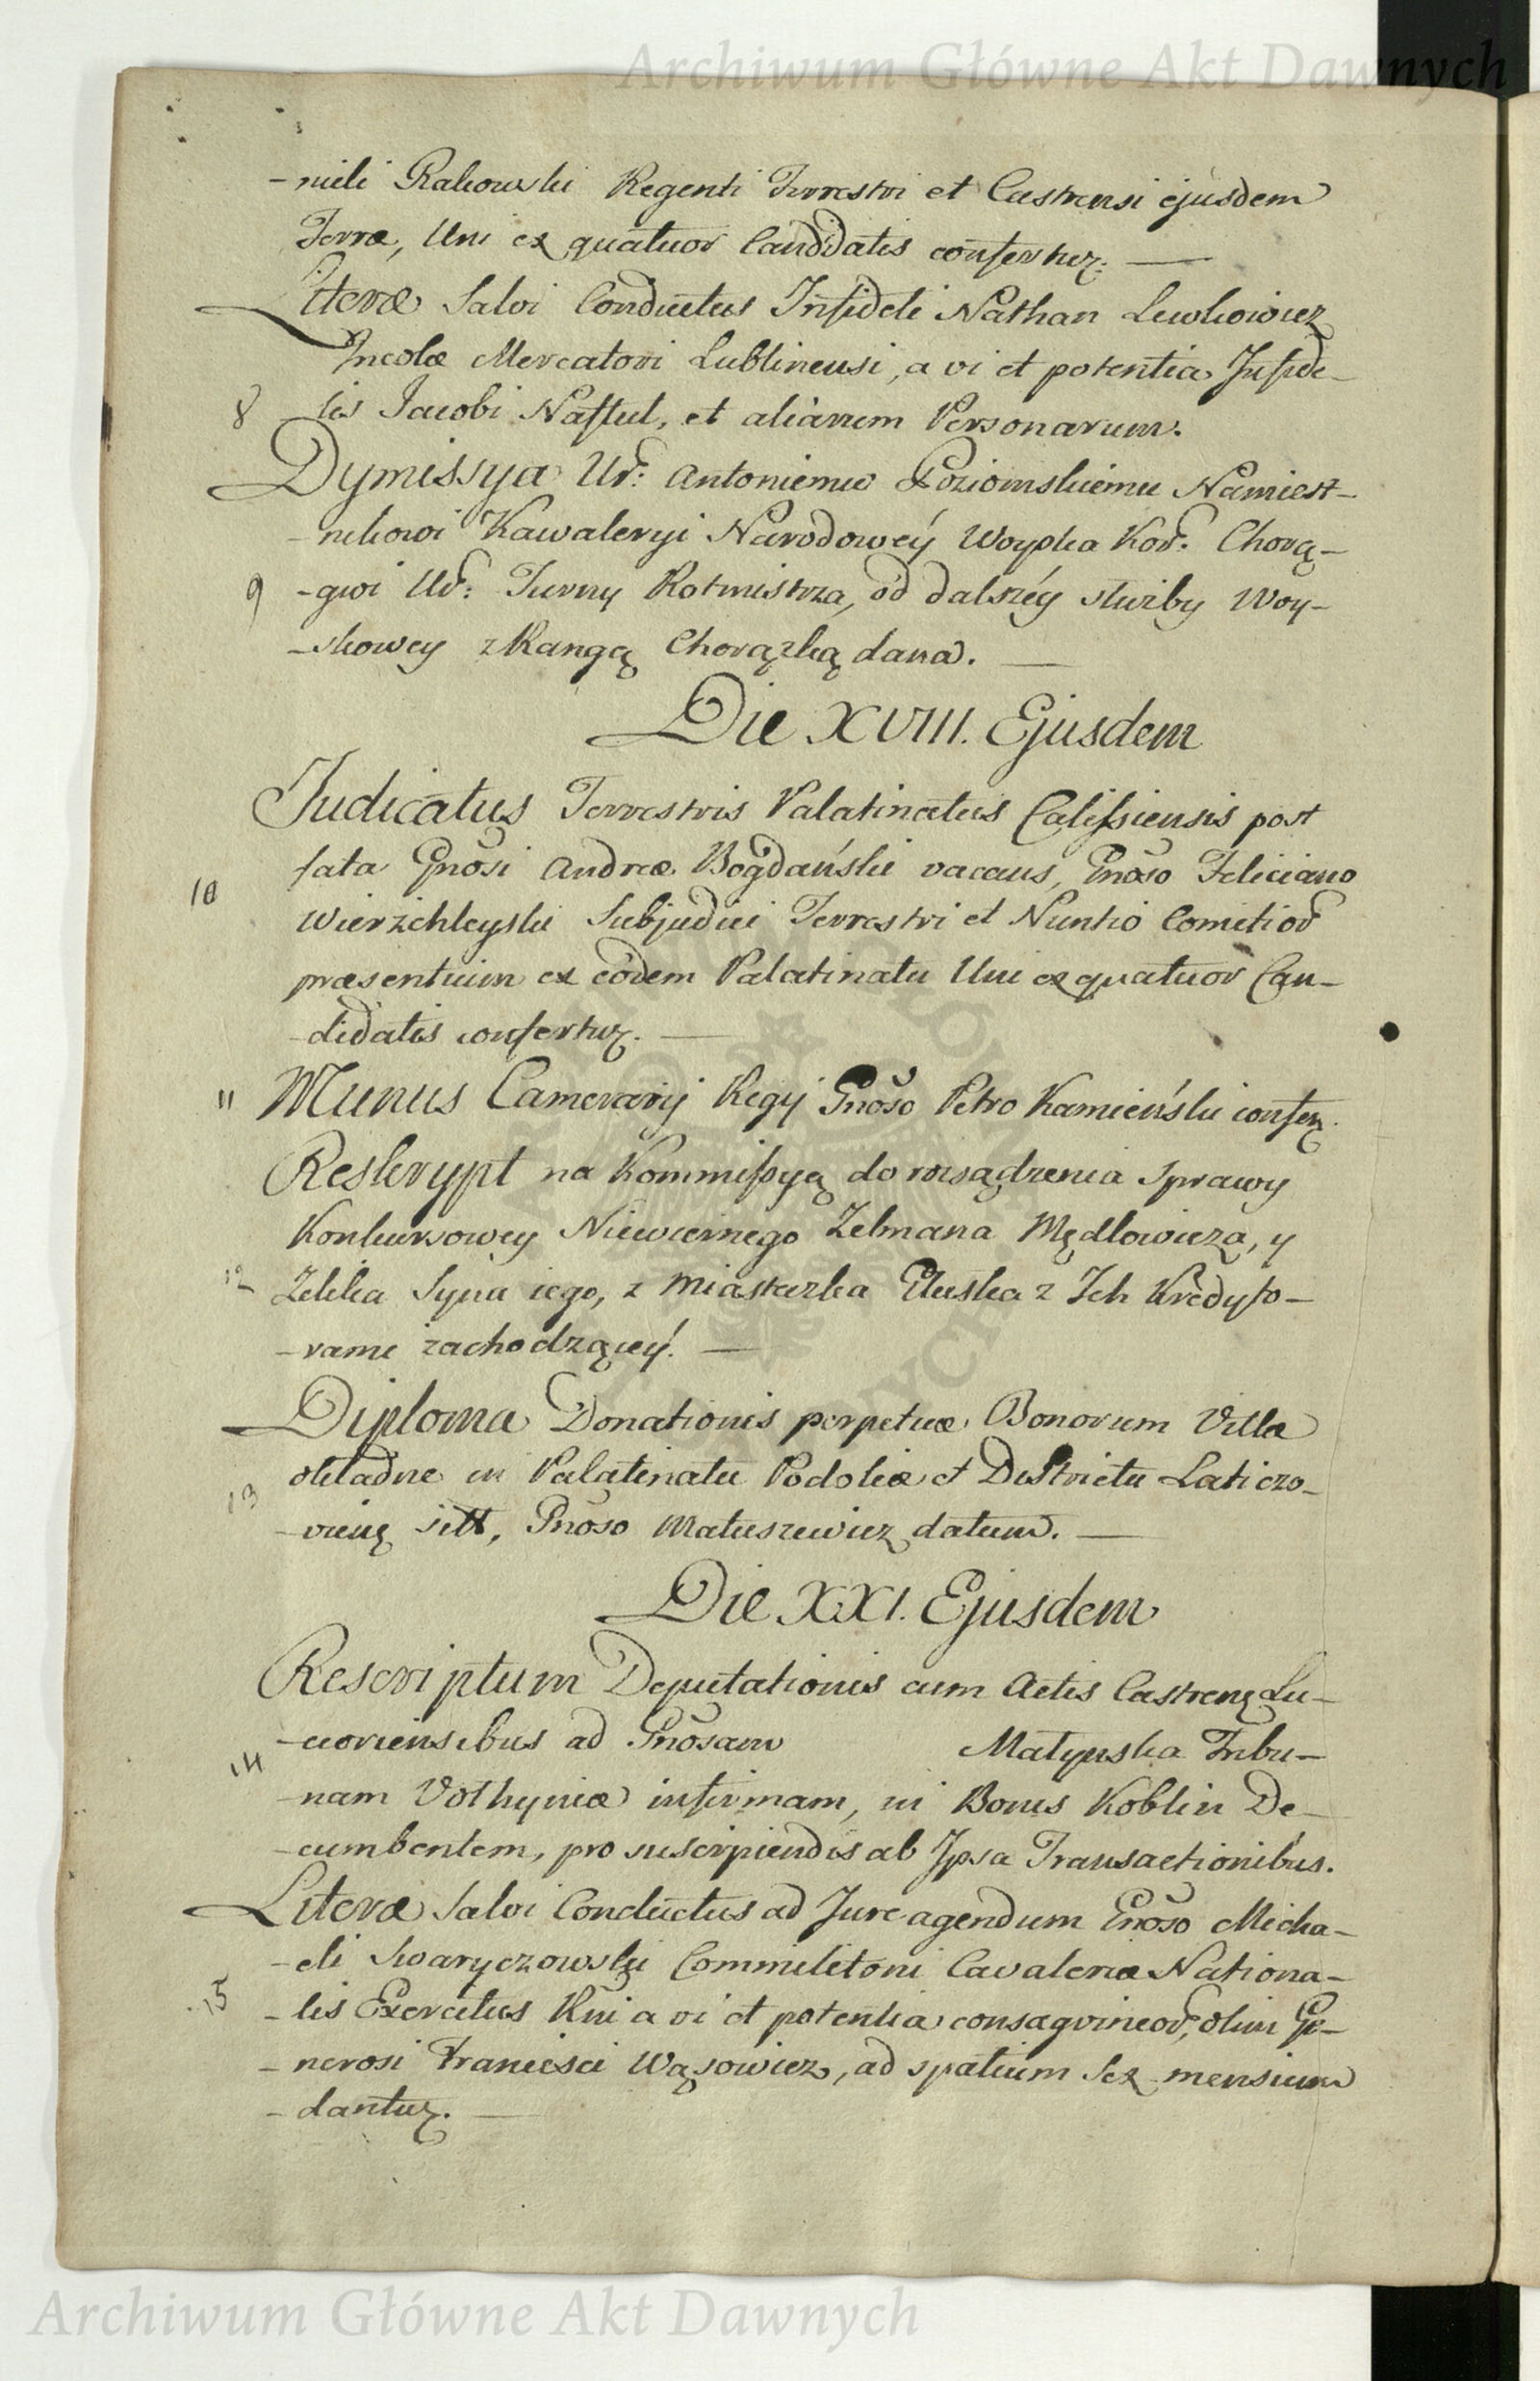 Archiwum Główne Akt Dawnych
-nieli Rakowski Regenti Terrestri et Castrensi ejusdem
Terræ, Uni ex quatuor Candidatis confertur. —
Literæ Salvi Conductus Infideli Nathan Lewkowicz
Incolæ Mercatori Lublinensi, a vi et potentia Infide-
8 -lis Jacobi Naftul, et aliarum Personarum.
Dymissya Ur: Antoniemu Poziomskiemu Namiest-
-nikowi Kawaleryi Narodowéy Woyska Kor: Chorą-
9 -gwi Ur: Turny Rotmistrza, od dalszéy służby Woy-
-skowey z Rangą Chorążką dana. —
Die XVIII. Ejusdem
Judicatus Terrestris Palatinatus Calissiensis post
fata Gnosi Andreæ Bogdański vacans, Gnoso Feliciano
10
Wierzchleyski Subjudici Terrestri et Nuntio Comitior
præsentium ex eodem Palatinatu Uni ex quatuor Can-
-didatis confertur. —
11 Munus Camerarij Regij Gnoso Petro Kamieński confer.
Reskrypt na Kommissyą do rozsądzenia Sprawy
Konkursowey Niewiernego Zelmana Mędlowicza, y
12 Zelika Syna iego, z Miasteczka Kluska z Ich Kredyto-
-rami zachodzącéy. —
Diploma Donationis perpetuæ Bonorum Villæ
Okladne in Palatinatu Podoliæ et Districtu Laticzo-
13
-vien sitt, Gnoso Matuszewicz datum. —
Die XXI. Ejusdem
Rescriptum Deputationis cum Actis Castren Lu-
-ceoriensibus ad Gnosam Matynska Tribu-
14
-nam Volhyniæ infirmam, in Bonis Koblin De-
-cumbentem, pro suscipiendis ab Ipsa Transactionibus.
Literæ Salvi Conductus ad Jure agendum Gnoso Micha-
-eli Swaryczowski Commilitoni Cavaleriæ Nationa-
15 -lis Exercitus Rni a vi et potentia consagvineor, olim Ge-
-nerosi Francisci Wąsowicz, ad spatium Sex mensium
-dantur. —
Archiwum Główne Akt Dawnych